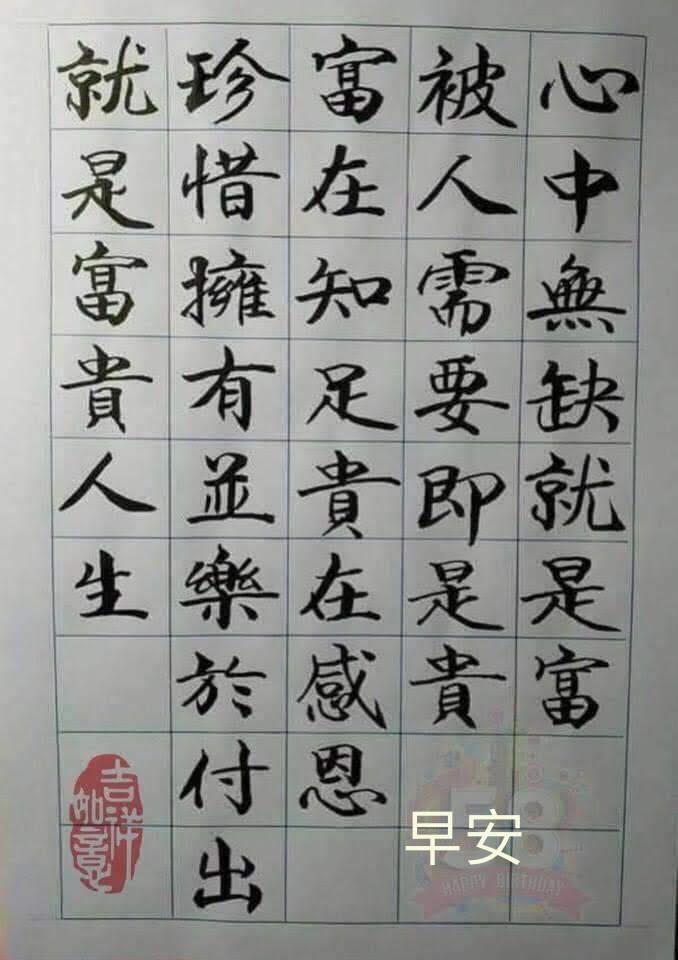 心中無缺就是富
被人需要即是貴
富在知足貴在感恩
珍惜擁有並樂於付出
就是富貴人生
吉祥
如意
早安
58
HAPPY BIRTHDAY